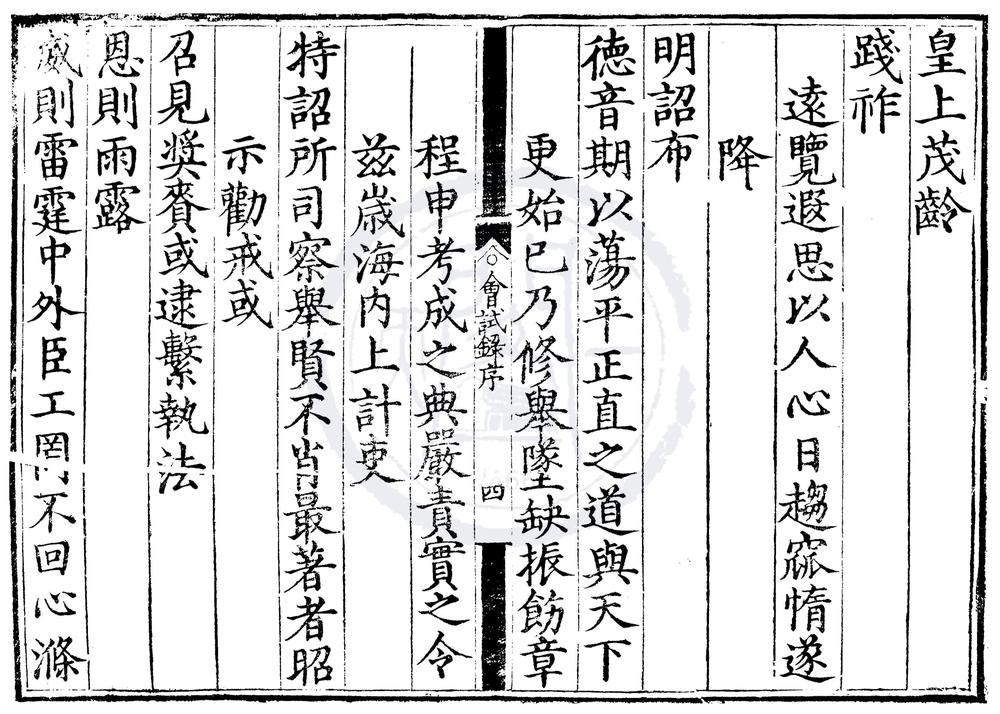 皇上茂齡
踐祚
遠覽遐思以人心日趨窳惰遂
降
明詔布
德音期以蕩平正直之道與天下
更始已乃修舉墜缺振飭章
會試錄序
四
程申考成之典嚴責實之令
茲歲海内上計吏
特詔所司察舉賢不肖最著者昭
示勸戒或
召見奬賚或逮繫執法
恩則雨露
威則雷霆中外臣工罔不回心滌